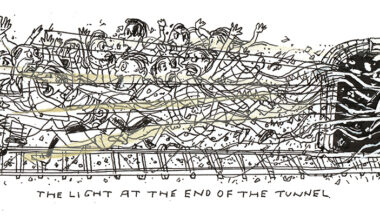 THE LIGHT AT THE END OF THE TUNNEL